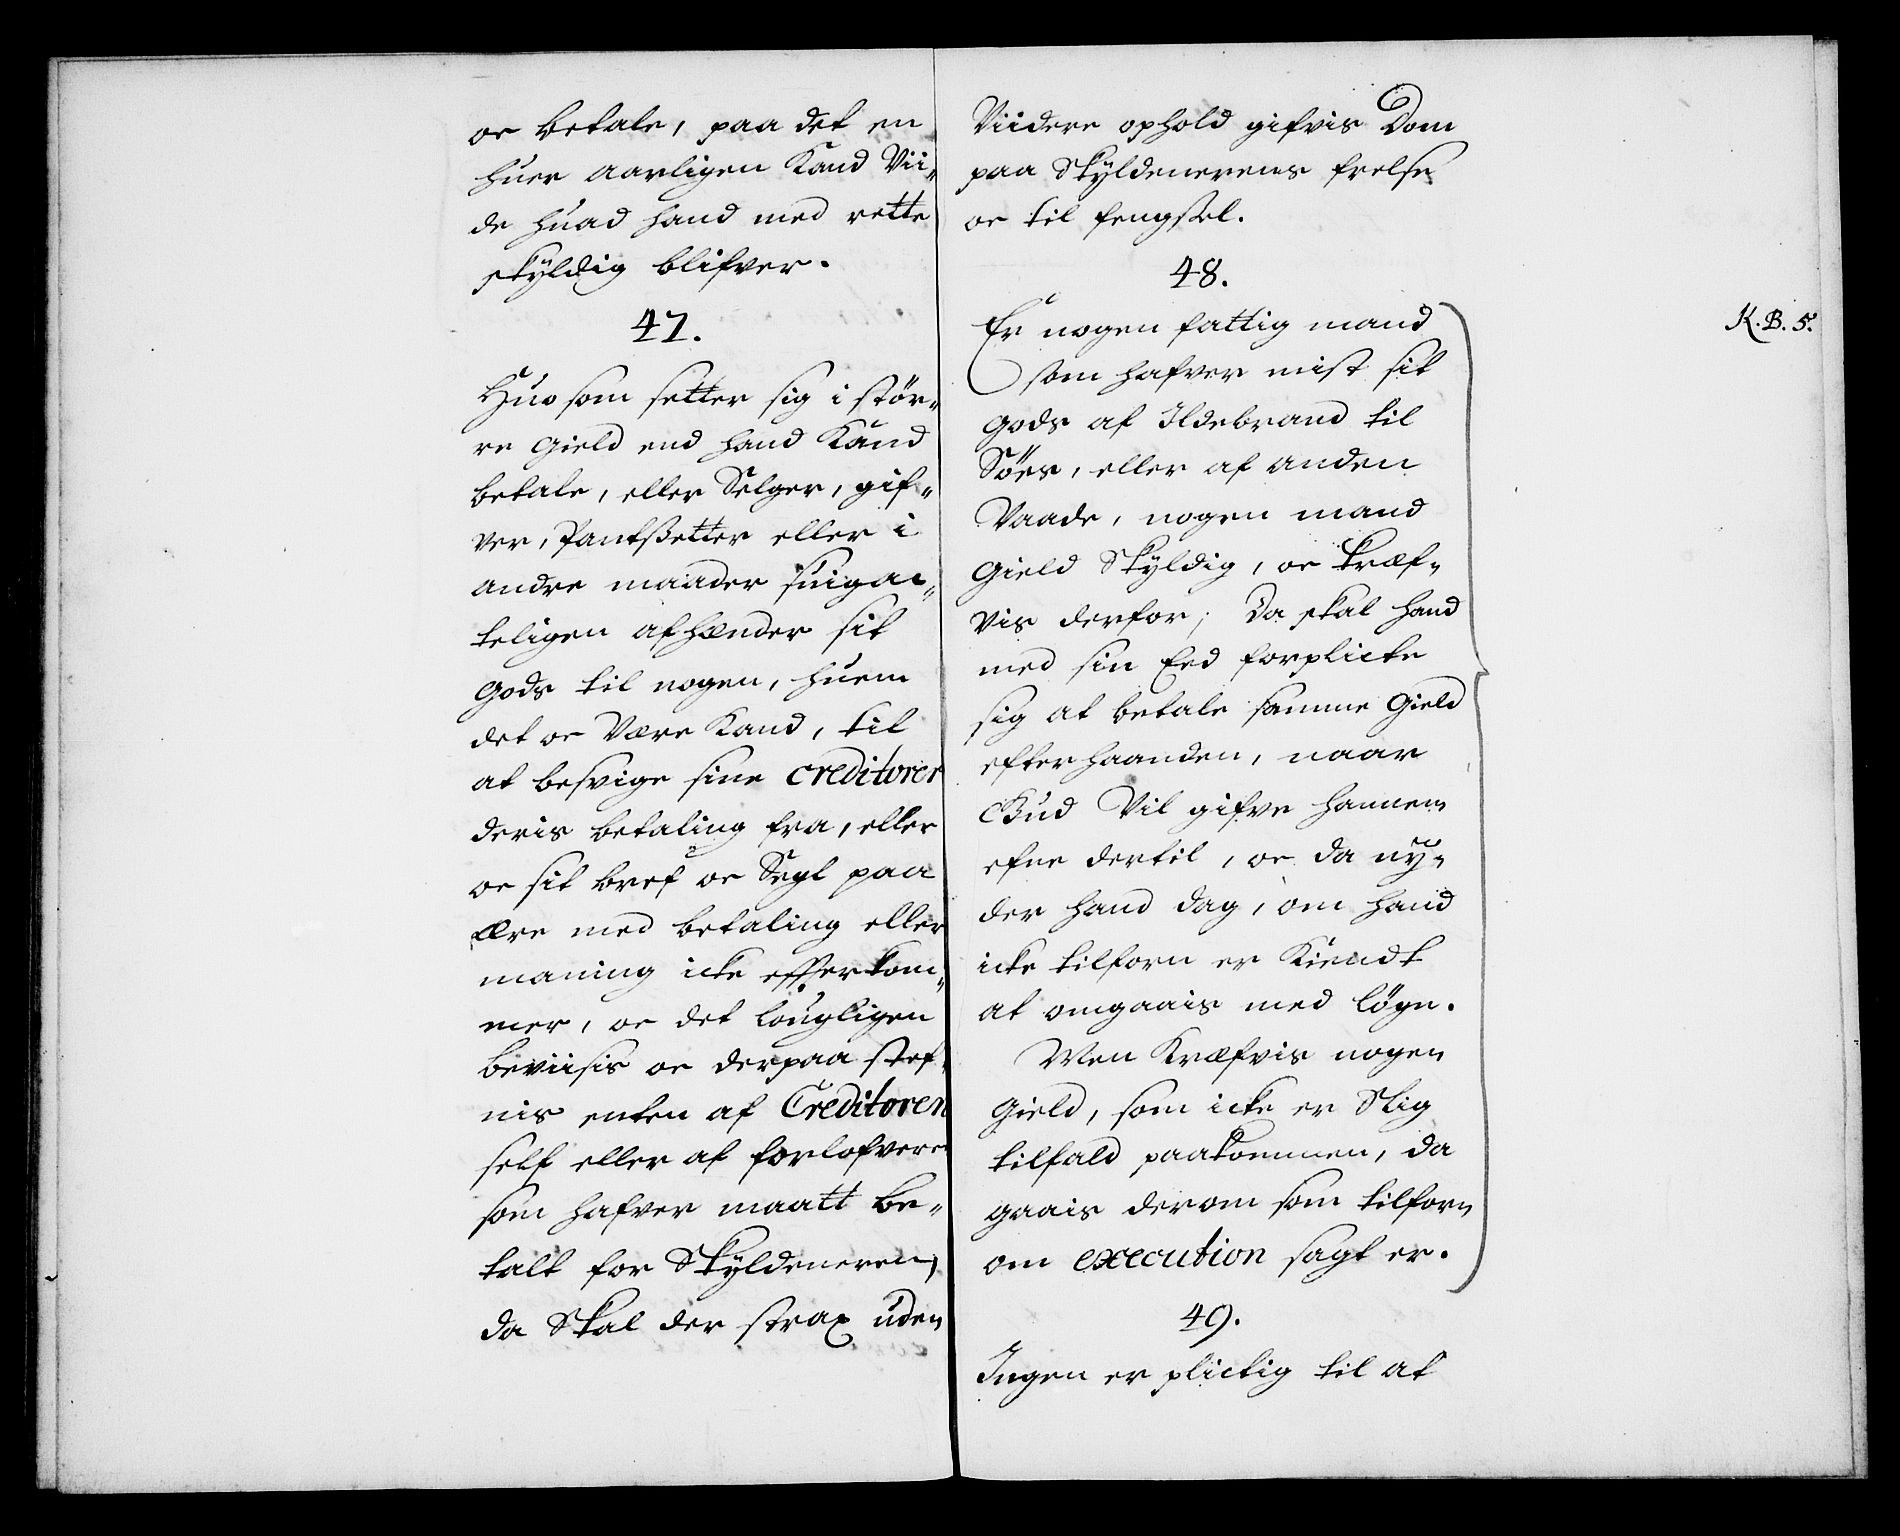 oc betale, paa det en
huer aarligen Kand Vii-
de huad hand med rette
skyldig blifver.
47.
Huo som setter sig i stør-
re Gield end hand Kand
betale, eller Selger, gif-
ver, Pantsetter eller i
andre maader suigac-
teligen afhænder sit
Gods til nogen, huem
det oc Være Kand, til
at besvige sine Creditorer
deris betaling fra, eller
oc sit bref oc Segl paa
ære med betaling eller
maning icke efterkom-
mer, oc det lougligen
beviisis oc derpaa stef-
nis enten af Creditoren
self eller af forlofveren
som hafver maatt be-
talt for Skyldeneren,
da Skal der strax uden
Viidere ophold gifvis Dom
paa Skyldenerens frelse
oc til fengsel.
48.
K. B. 5.
Er nogen fattig mand
som hafver mist sit
gods af Ildebrand til
Söes, eller af anden
Vaade, nogen mand
Gield Skyldig, oc kræf-
vis derfor; Da skal hand
med sin Eed forplicte
sig at betale samme Gield
efterhaanden, naar
Gud Vil gifve hannem
efne dertil, oc da ny-
der hand dag, om hand
icke tilforn er Kiendt
at omgaais med løgn.
Men Kræfvis nogen
Gield, som icke er Slig
tilfald paakommen, da
gaais derom som tilforn
om execution sagt er.
49.
Ingen er plictig til at